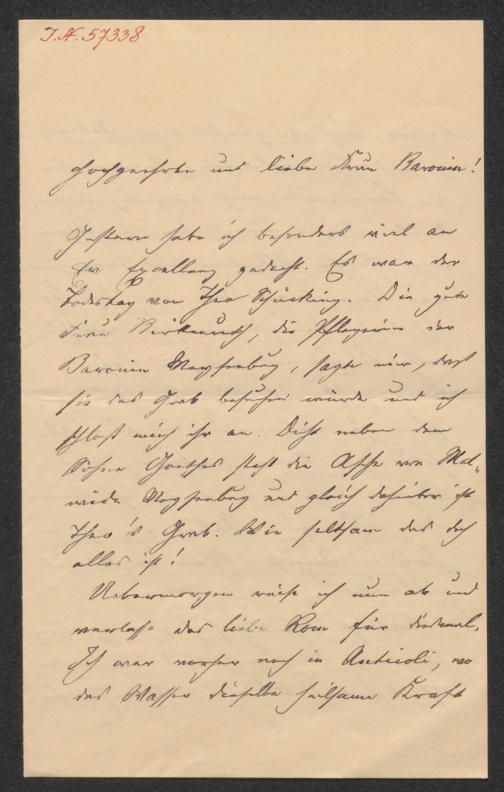 I.N. 57338
Hochgeehrte und liebe Frau Baronin!
Gestern habe ich besonders viel an
Ew. Excellenz gedacht. Es war der
Todestag von Theo Schücking. Die gute
Frau die Pflegerin der
Baronin Meysenbug, sagte mir, daß
sie das Grab besuchen würde und ich
schloß mich ihr an. Dicht neben dem
Sohne Goethes steht die Asche von Mal-
wida Meysenbug und gleich dahinter ist
Theo's Grab. Wie seltsam das doch
alles ist!
Uebermorgen reise ich nun ab und
verlasse das liebe Rom für diesmal.
Ich war vorher noch in Anticoli, wo
das Wasser dieselbe heilsame Kraft